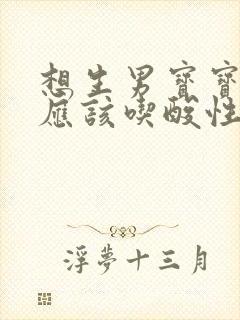 想生男寶寶
應該喫酸性
浮夢十三月